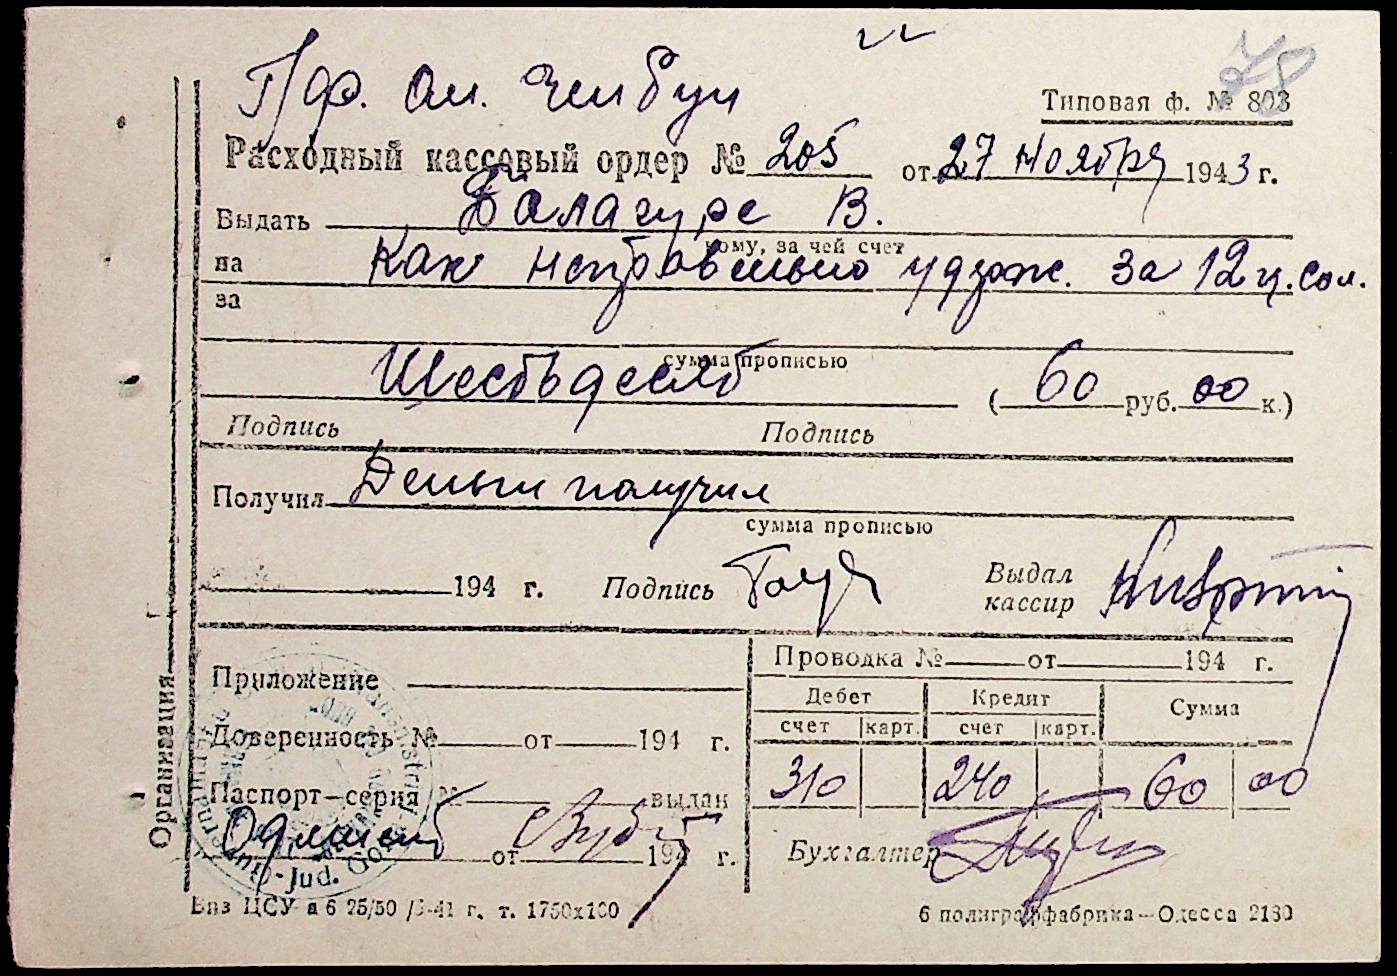 78
Типовая ф. № 803
Расходный кассовый ордер № 205 от 27 Ноября 1943 г.
Выдать Балагуре В.
кому, за чей счет
на Как неправильно удерж. за 12 ц. сол.
за
сумма прописью
Шестьдесят (60 руб. 00 к.)
Подпись Подпись
Получил Деньги получил
сумма прописью
194 г. Подпись Выдал кассир
Организация
Приложение
Доверенность № от 194 г.
Паспорт—серия № выдан
от 194 г.
Проводка № от 194 г.
Дебет Кредит Сумма
счет карт. счет карт.
310 240 60 00
Бухгалтер
Jud.
6 полиграффабрика—Одесса 2180